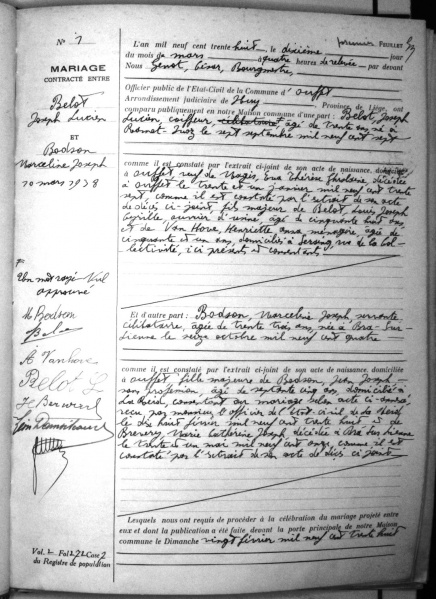 N° 1
MARIAGE
CONTRACTÉ ENTRE
Belot
Joseph Lucien
ET
Bodson
Marceline Joseph
10 mars 1938
Un mot rayé nul
approuvé
M Bodson
A Vanhove
Belot L
Vol. Fol. 121 Case 2
du Registre de population
premier FEUILLET
L'an mil neuf cent trente huit, le dixième jour
du mois de mars à quatre heures de relevée, par devant
Nous Bourgmestre,
Officier public de l'Etat-Civil de la Commune d'Ouffet
Arrondissement judiciaire de Huy Province de Liége, ont
comparu publiquement en notre Maison commune d'une part: Belot, Joseph
Lucien, coiffeur, célibataire, âgé de trente ans, né à
le sept septembre mil neuf cent sept
comme il est constaté par l'extrait ci-joint de son acte de naissance, domicilié
à Ouffet, veuf de Thérèse décédée
à Ouffet le trente et un janvier mil neuf cent trente
sept, comme il est constaté par l'extrait de son acte
de décès ci-joint, fils majeur de Belot, Louis Joseph
ouvrier d'usine, âgé de cinquante huit ans
et de Van Hove, Henriette Anna ménagère, âgée de
cinquante et un ans, domiciliés à Seraing rue de la Col-
lectivité, ici présents et consentants
Et d'autre part: Bodson, Marceline Joseph servante
célibataire, âgée de trente trois ans, née à Bra-sur-
Lienne le seize octobre mil neuf cent quatre
comme il est constaté par l'extrait ci-joint de son acte de naissance, domiciliée
à Ouffet, fille majeure de Bodson, Jean Joseph
sans profession, âgé de septante cinq ans, domicilié à
La Reid, consentant au mariage selon acte ci-annexé
reçu par monsieur l'officier de l'état civil de La Reid,
le dix huit février mil neuf cent trente huit et de
Marie Catherine Joseph, décédée à Bra sur Lienne
le trente et un mai mil neuf cent onze, comme il est
constaté par l'extrait de son acte de décès ci joint
Lesquels nous ont requis de procéder à la célébration du mariage projeté entre
eux et dont la publication a été faite devant la porte principale de notre Maison
commune le Dimanche vingt février mil neuf cent trente huit